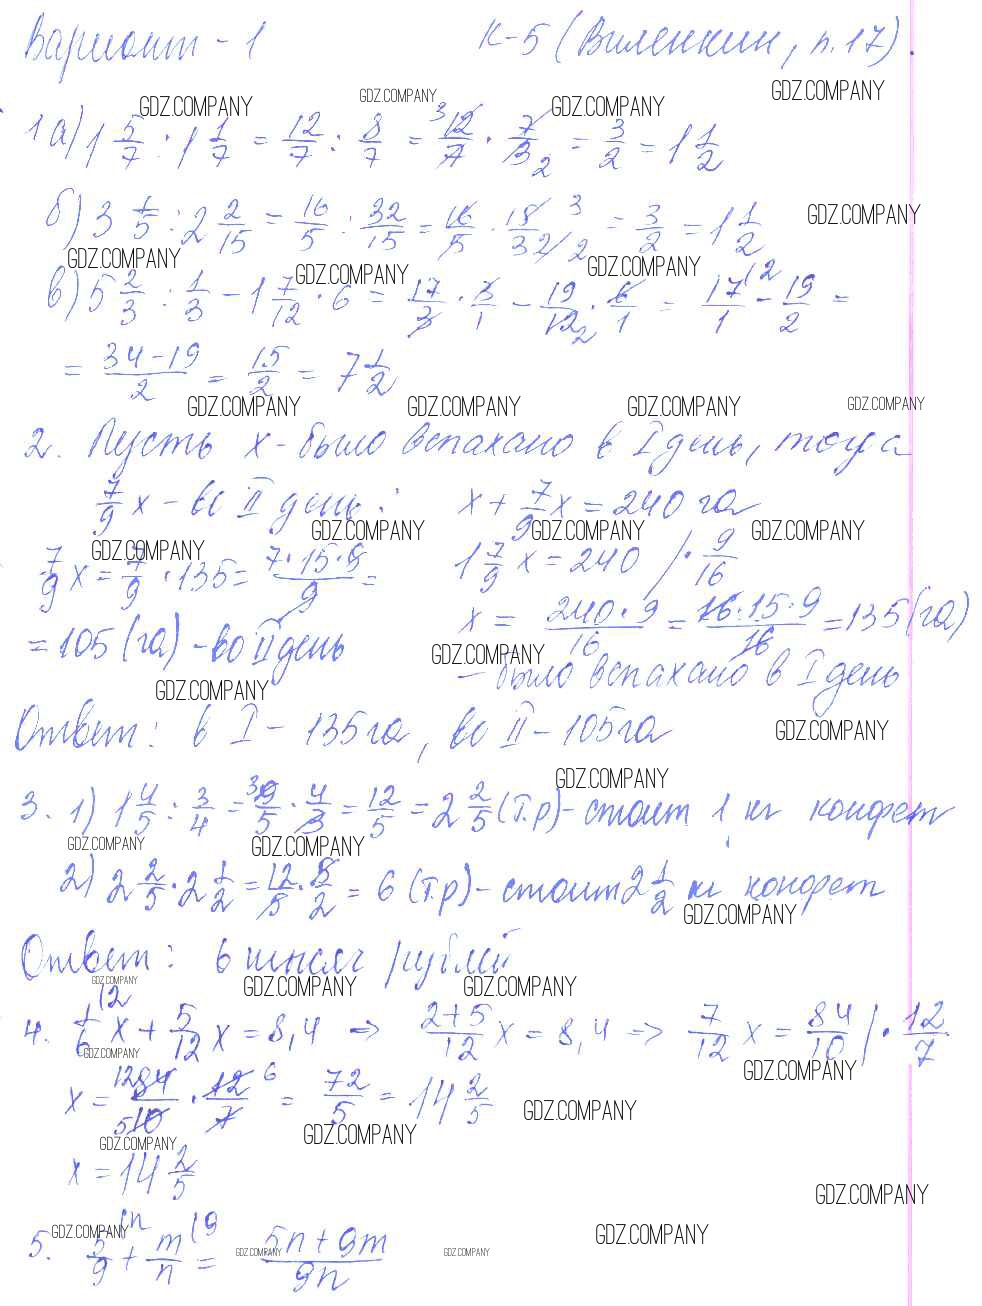 Вариант - 1 К-5 (Виленкин, п. 17).
GDZ.COMPANY GDZ.COMPANY GDZ.COMPANY GDZ.COMPANY
1 а) 1 5/7 : 1 1/7 = 12/7 : 8/7 = 12/7 · 7/8 = 3/2 = 1 1/2
б) 3 1/5 : 2 2/15 = 16/5 : 32/15 = 16/5 · 15/32 = 3/2 = 1 1/2
GDZ.COMPANY
GDZ.COMPANY GDZ.COMPANY GDZ.COMPANY
в) 5 2/3 : 1/3 - 1 7/12 · 6 = 17/3 · 3/1 - 19/12 · 6/1 = 17/1 - 19/2 =
= (34-19)/2 = 15/2 = 7 1/2
GDZ.COMPANY GDZ.COMPANY GDZ.COMPANY GDZ.COMPANY
2. Пусть x - было вспахано в I день, тогда
7/9 x - во II день: x + 7/9 x = 240 га
GDZ.COMPANY GDZ.COMPANY GDZ.COMPANY
GDZ.COMPANY 1 7/9 x = 240 / · 9/16
7/9 x = 7/9 · 135 = (7·15·9)/9 =
x = (240·9)/16 = (16·15·9)/16 = 135 (га)
= 105 (га) - во II день
GDZ.COMPANY
- было вспахано в I день
GDZ.COMPANY
Ответ: в I - 135 га, во II - 105 га
GDZ.COMPANY
GDZ.COMPANY
3. 1) 1 4/5 : 3/4 = 9/5 · 4/3 = 12/5 = 2 2/5 (т.р) - стоит 1 кг конфет
GDZ.COMPANY GDZ.COMPANY
2) 2 2/5 · 2 1/2 = 12/5 · 5/2 = 6 (т.р) - стоит 2 1/2 кг конфет
GDZ.COMPANY
Ответ: 6 тысяч рублей
GDZ.COMPANY GDZ.COMPANY GDZ.COMPANY
4. 1/6 x + 5/12 x = 8,4 => (2+5)/12 x = 8,4 => 7/12 x = 84/10 | · 12/7
GDZ.COMPANY GDZ.COMPANY
x = 84/10 · 12/7 = 72/5 = 14 2/5
GDZ.COMPANY
GDZ.COMPANY GDZ.COMPANY
x = 14 2/5
GDZ.COMPANY
GDZ.COMPANY GDZ.COMPANY
5. 5/9 + m/n = (5n+9m)/9n
GDZ.COMPANY GDZ.COMPANY